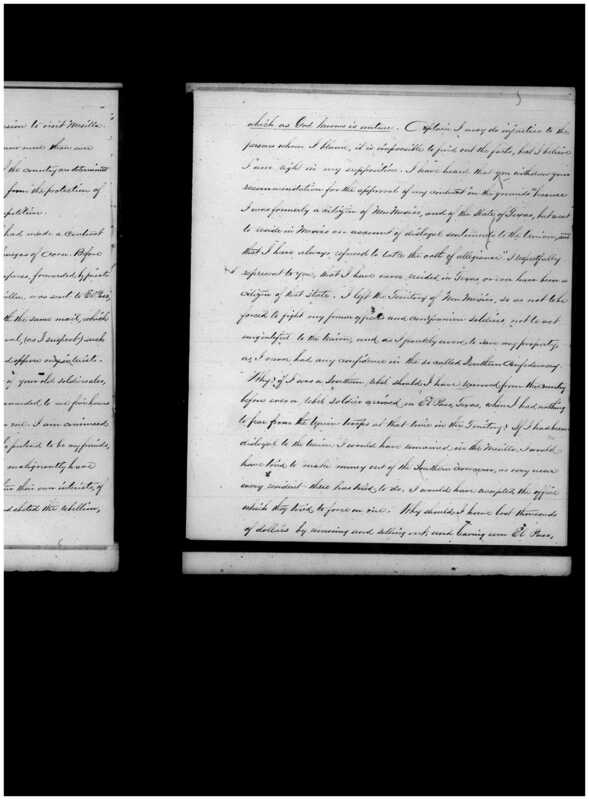 sion to visit Mesilla
more than
the country an determined
from the protection of
had made a contract
of Corn. Before
forwarded,
was sent to El Paso,
th the same mail, which
(as I suspect) such
your old soldier
for hours
me. I am
pretend to be my friends,
malignantly have
their own interests, of
abetted the rebellion,
which as God knows is untrue. Captain I may do injustice to the
persons whom I blame, it is impossible to find out the facts, but I believe
I am right in my supposition. I have heard that you withdrew your
recommendation for the approval of my contract on the grounds "because
I was formerly a citizen of New Mexico, and of the State of Texas, but went
to reside in Mexico on account of disloyal sentiments to the Union, and
that I have always refused to take the oath of allegiance" I respectfully
represent to you, that I have never resided in Texas or ever have been a
citizen of that state. I left the Territory of New Mexico, so as not to be
forced to fight my former officers and companion soldiers, not to act
ungrateful to the Union, and as I frankly avow, to save my property,
as I never had any confidence in the so called Southern Confederacy.
Why; if I was a Southern rebel should I have removed from the country
before ever a rebel soldier arrived in El Paso, Texas, when I had nothing
to fear from the Union troops at that time in this Territory? If I had been
disloyal to the Union I would have remained in the Mesilla. I would
have tried to make money out of the Southern as very near
every resident there has tried to do. I would have accepted the office
which they tried to force on me. Why should I have lost thousands
of dollars by removing and selling out, and leaving even El Paso,